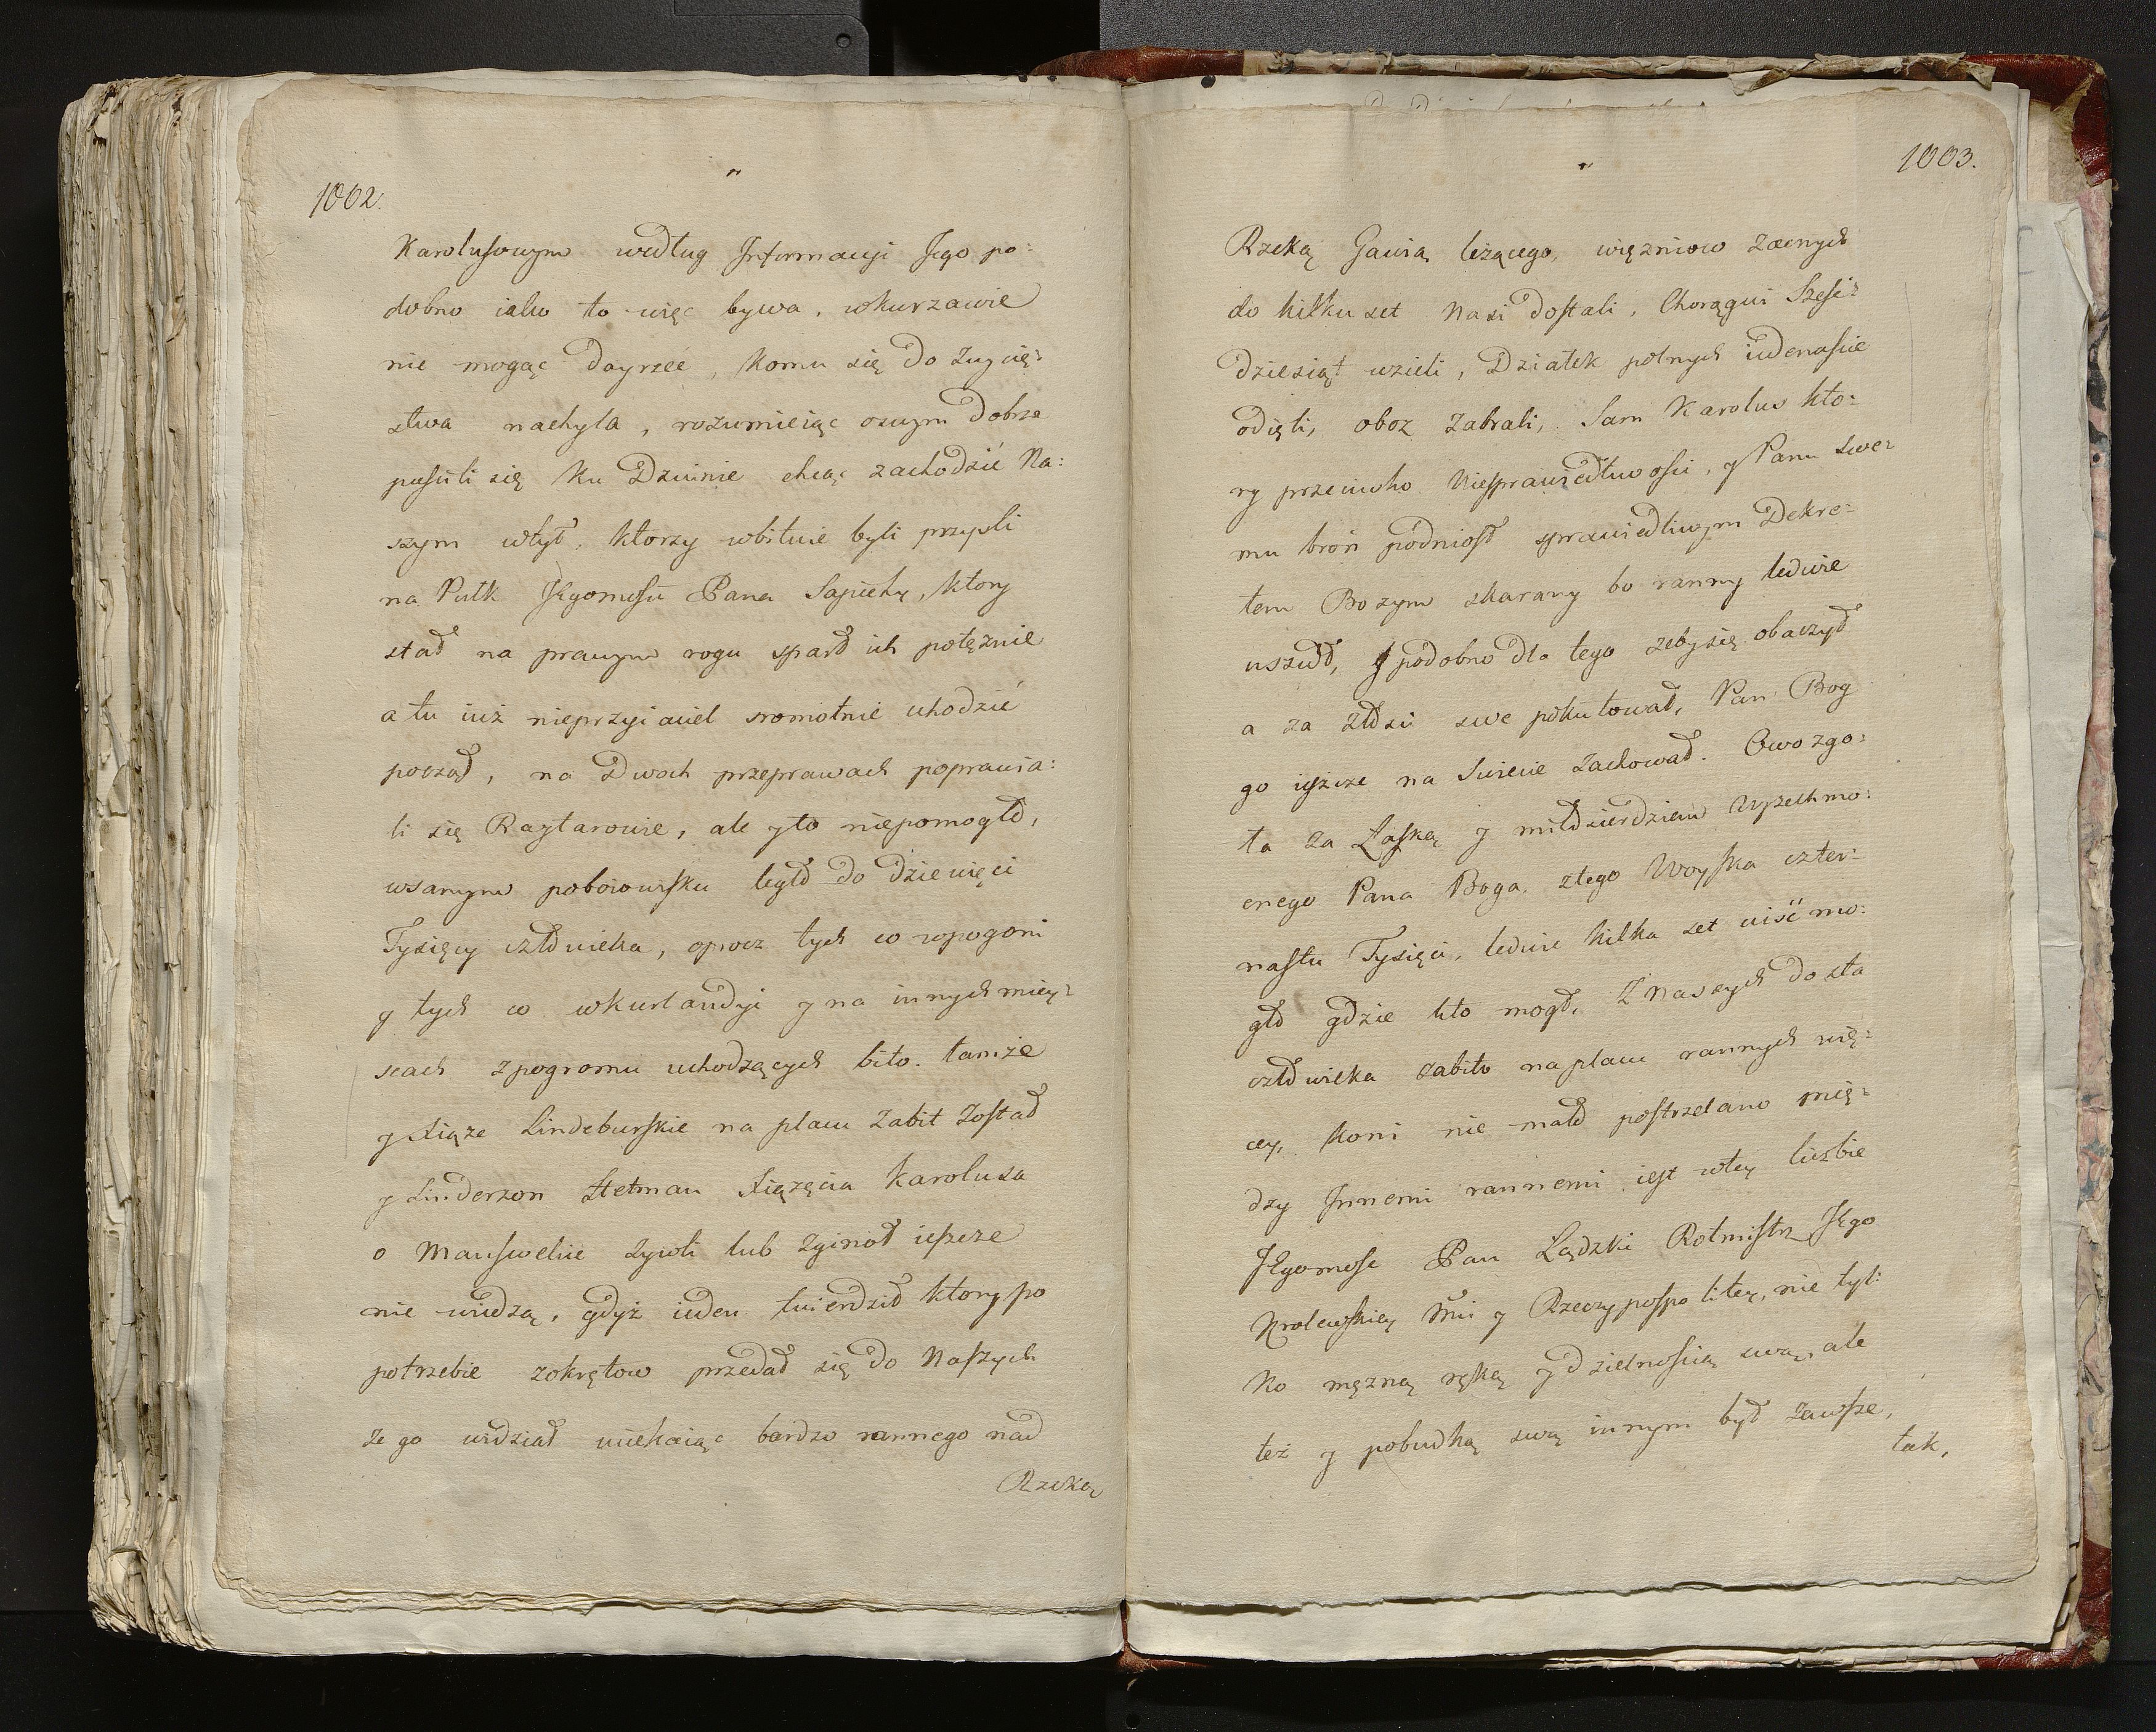 1002.
Karolusowym według Informacyi Jego po:
dobno iako to więc bywa, wkurzawie
nie mogąc dayrzeć, komu się do zwycię:
stwa nachyla, rozumieiąc oswym dobrze
puścili się ku Dzwinie chcąc zachodzić Na:
szym wtył, ktorzy wbitwie byli przyśli
na Pułk Jegomości Pana Sapiehy, ktory
stał na prawym rogu sparł ich potężnie
a tu iuż nieprzyiaciel sromotnie uhodzić
począł, na Dwoch przeprawach poprawia:
li się Raytarowie, ale yto niepomogło,
wsamym poboiowisku legło do dziewięci
Tysięcy człowieka, oprocz tych co wpogoni
y tych co wkurlandyi y na innych miey:
scach zpogromu uchodzących bito. tamże
y Xiąże Lindeburskie na placu zabit został
y Linderson Hetman Xiążęcia Karolusa
o Manswelcie żywli lub zginoł ieszcze
nie wiedzą, gdyż ieden twierdził ktory po
potrzebie zokrętow przedał się do Naszych
że go widział uiehaiąc bardzo rannego nad
Rzeką
1003.
Rzeką Gawią leżącego, więzniow zacnych
do kilku set Nasi dostali, Chorągwi Sześć:
dziesiąt wzieli, Działek polnych iedenaście
odięli, oboz zabrali, Sam Karolus kto:
ry przeciwko Niesprawiedłwości, y Panu swe:
mu broń podniosł sprawiedliwym Dekre:
tem Bożym skarany bo ranny ledwie
uszedł, y podobno dla tego żeby się obaczył
a za złości swe pokutował, Pan Bog
go ieszcze na Swiecie zachował. Owo zgo:
ła za Łaską y miłosierdziem Wszechmo:
cnego Pana Boga, ztego Woyska czter:
nastu Tysięci, ledwie kilka set uiść mo:
gło gdzie kto mogł, Z Naszych do sta
człowieka zabito na placu rannych wię:
cey, koni nie mało postrzelano mię:
dzy Innemi rannemi iest wtey liczbie
Jegomość Pan Lądzki Rotmistrz Jego
Krolewskiey Mci y Rzeczypospolitey, nie tyl:
ko mężną ręką y dzielnością swą, ale
też y pobudką swą innym był zawsze,
tak,